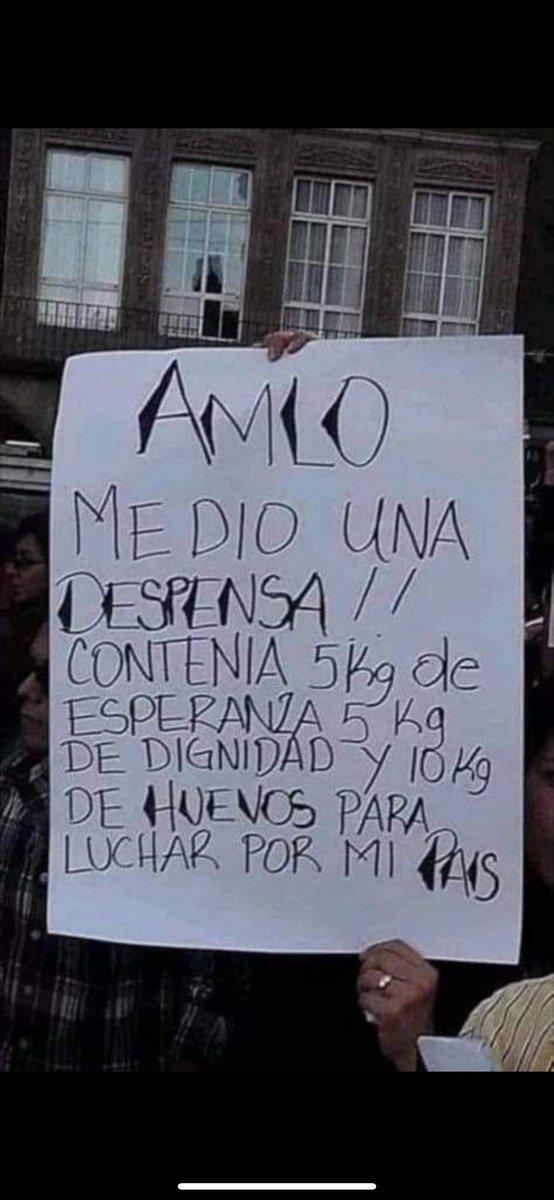 AMLO
MEDIO UNA
DESPENSA //
CONTENIA 5Kg de
ESPERANZA 5 Kg
DE DIGNIDAD Y 10 Kg
DE HUEVOS PARA
LUCHAR POR MI PAIS